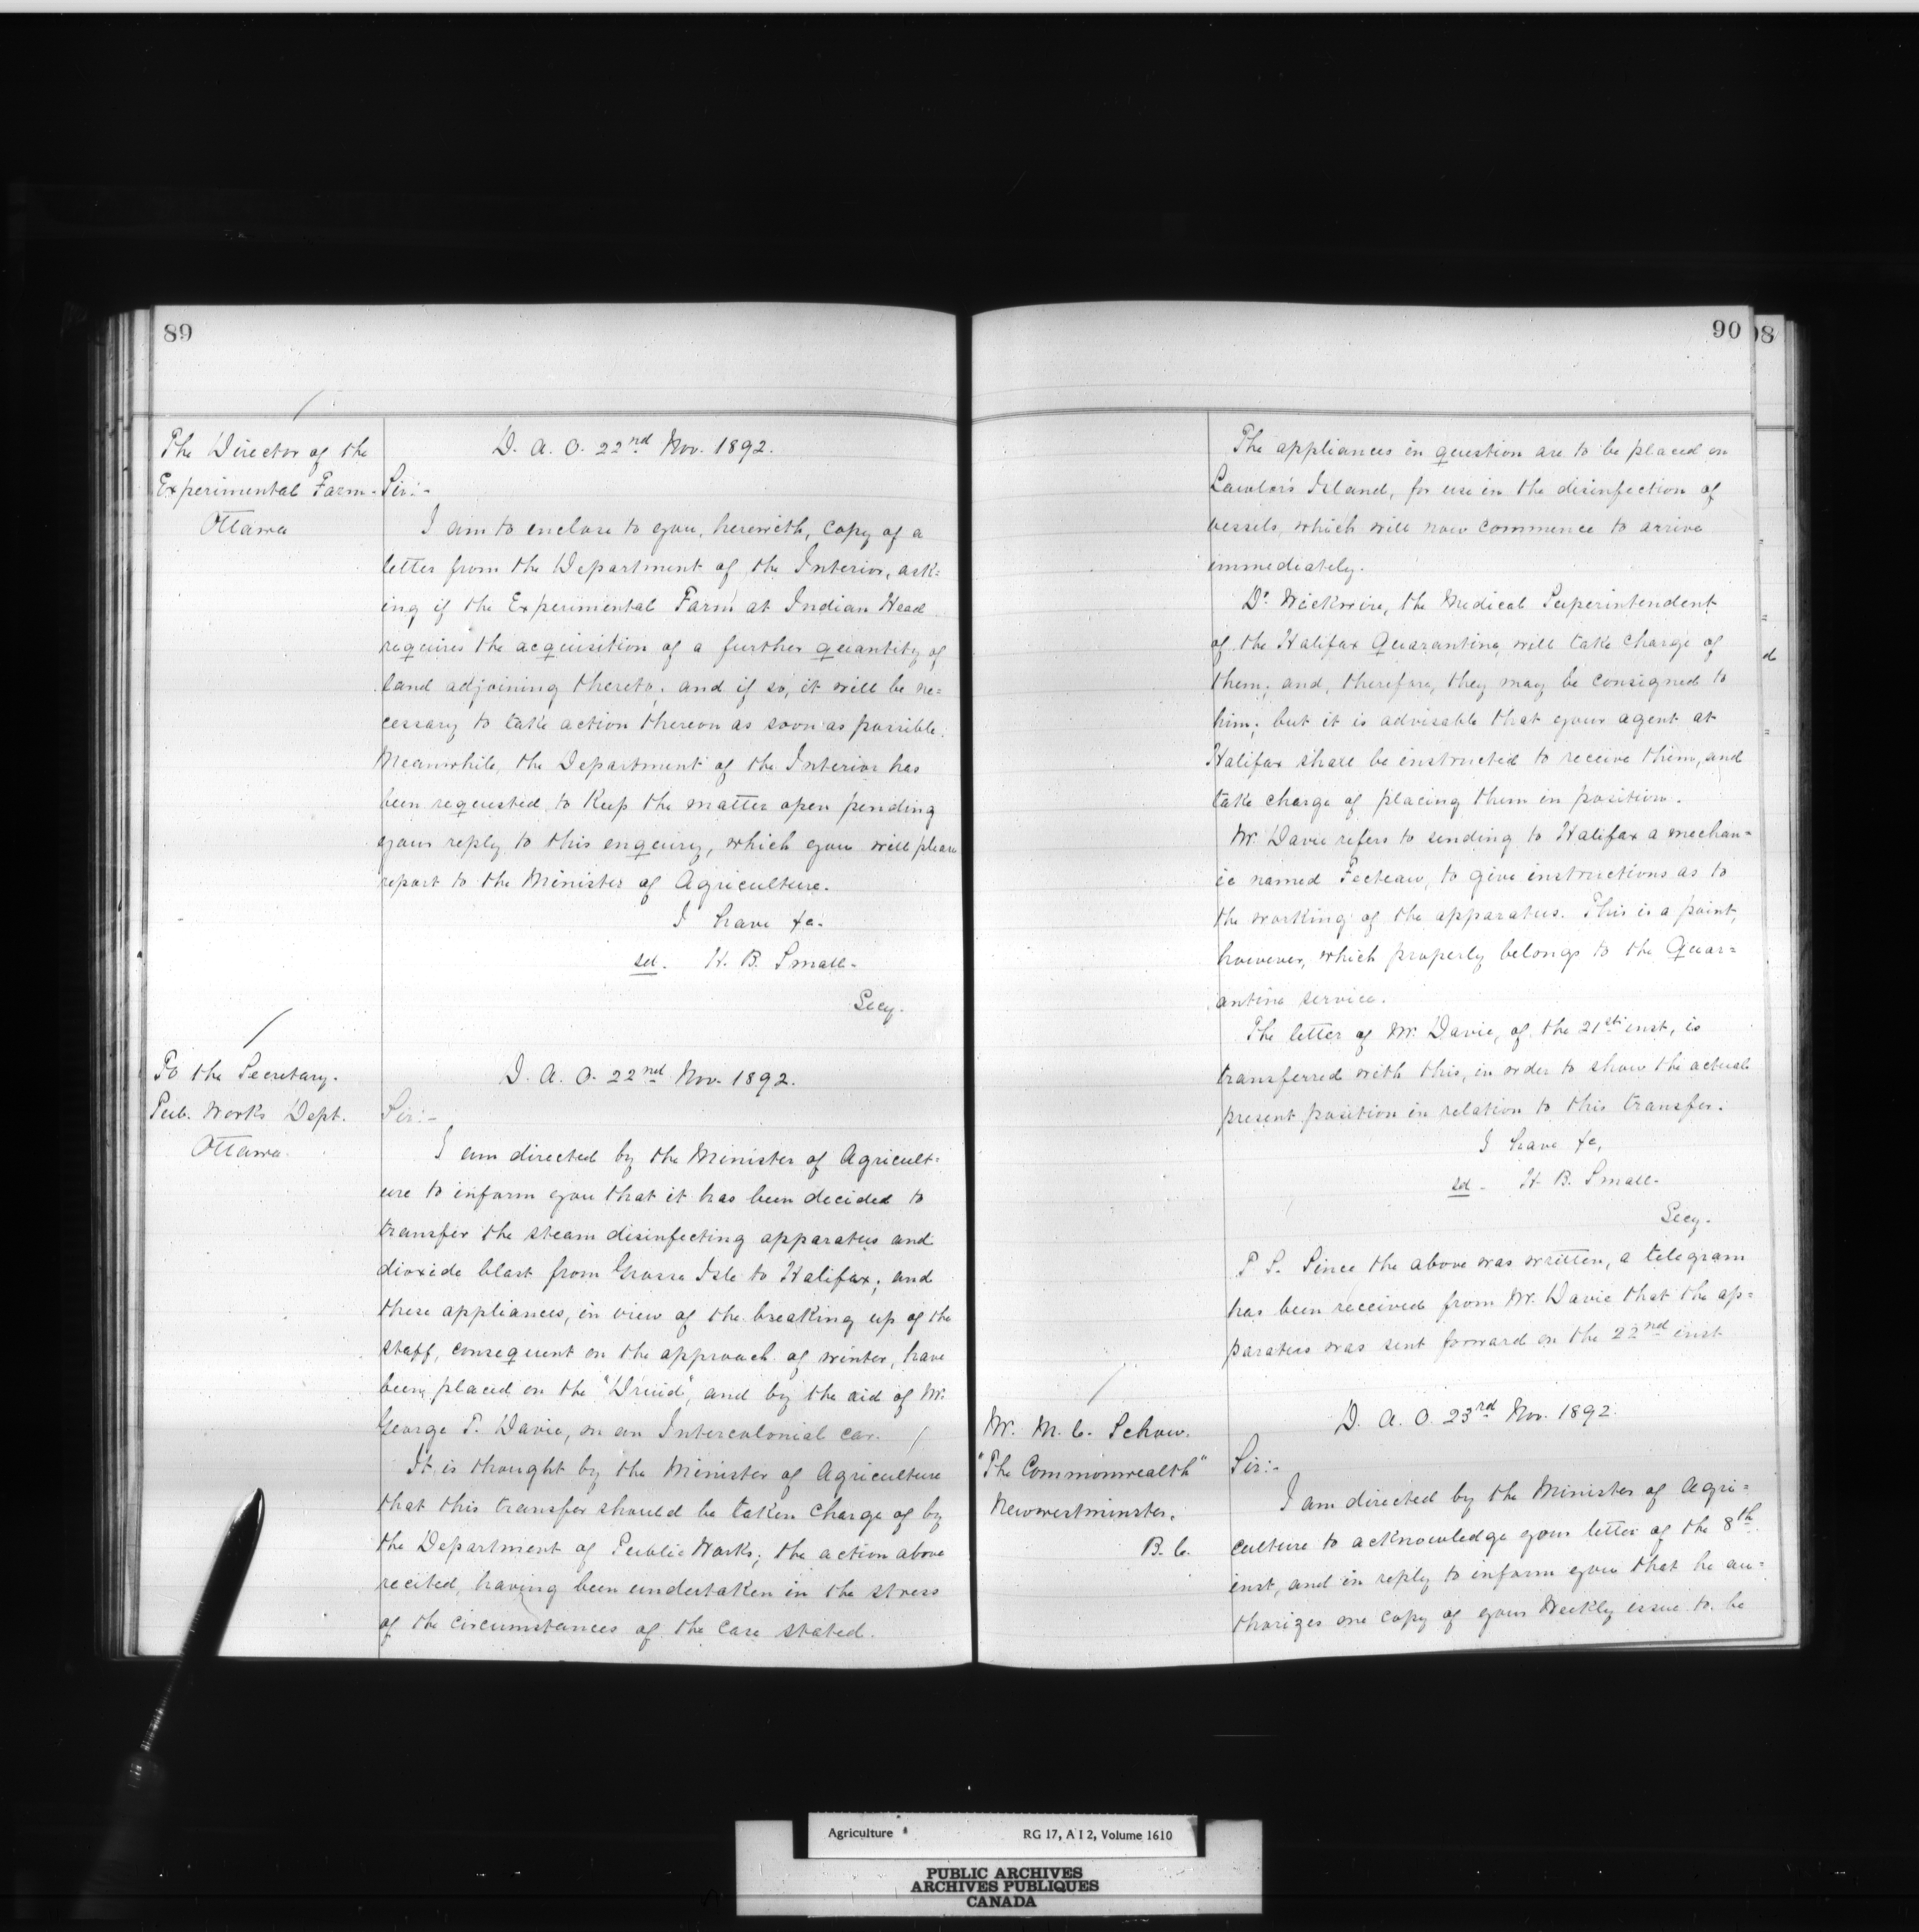 89
The Director of the
Experimental Farm-
Ottawa
D. A. O. 22nd Nov. 1892.
Sir:-
I am to enclose to you, herewith, copy of a
letter from the Department of the Interior, ask=
ing if the Experimental Farm at Indian Head
requires the acquisition of a further quantity of
land adjoining thereto, and if so, it will be ne=
cessary to take action thereon as soon as possible.
Meanwhile, the Department of the Interior has
been requested to keep the matter open pending
your reply to this enquiry, which you will please
report to the Minister of Agriculture.
I have &c.
sd. H. B. Small-
Secy.
To the Secretary.
Pub. Works Dept.
Ottawa.
D. A. O. 22nd Nov. 1892.
Sir:-
I am directed by the Minister of Agricult=
ure to inform you that it has been decided to
transfer the steam disinfecting apparatus and
dioxide blast from Grosse Isle to Halifax; and
these appliances, in view of the breaking up of the
staff, consequent on the approach of winter, have
been placed on the "Druid", and by the aid of Mr.
George T. Davie, on an Intercolonial car.
It is thought by the Minister of Agriculture
that this transfer should be taken charge of by
the Department of Public Works; the action above
recited, having been undertaken in the stress
of the circumstances of the case stated.
90
The appliances in question are to be placed on
Lawlor's Island, for use in the disinfection of
vessels, which will now commence to arrive
immediately.
Dr. Wickwire, the Medical Superintendent
of the Halifax Quarantine, will take charge of
them; and, therefore, they may be consigned to
him; but it is advisable that your agent at
Halifax shall be instructed to receive them, and
take charge of placing them in position.
Mr. Davie refers to sending to Halifax a mechan=
ic named Fecteau, to give instructions as to
the working of the apparatus. This is a point,
however, which properly belongs to the Quar=
antine service.
The letter of Mr. Davie, of the 21st inst, is
transferred with this, in order to show the actual
present position in relation to this transfer.
I have &c,
sd - H. B. Small-
Secy.
P S. Since the above was written, a telegram
has been received from Mr. Davie that the ap=
paratus was sent forward on the 22nd inst
Mr. M. C. Schow.
"The Commonwealth"
Newwestminster.
B. C.
D. A. O. 23rd Nov. 1892.
Sir:-
I am directed by the Minister of Agri=
culture to acknowledge your letter of the 8th
inst, and in reply to inform you that he au=
thorizes one copy of your Weekly issue to be
Agriculture
RG 17, A I 2, Volume 1610
PUBLIC ARCHIVES
ARCHIVES PUBLIQUES
CANADA